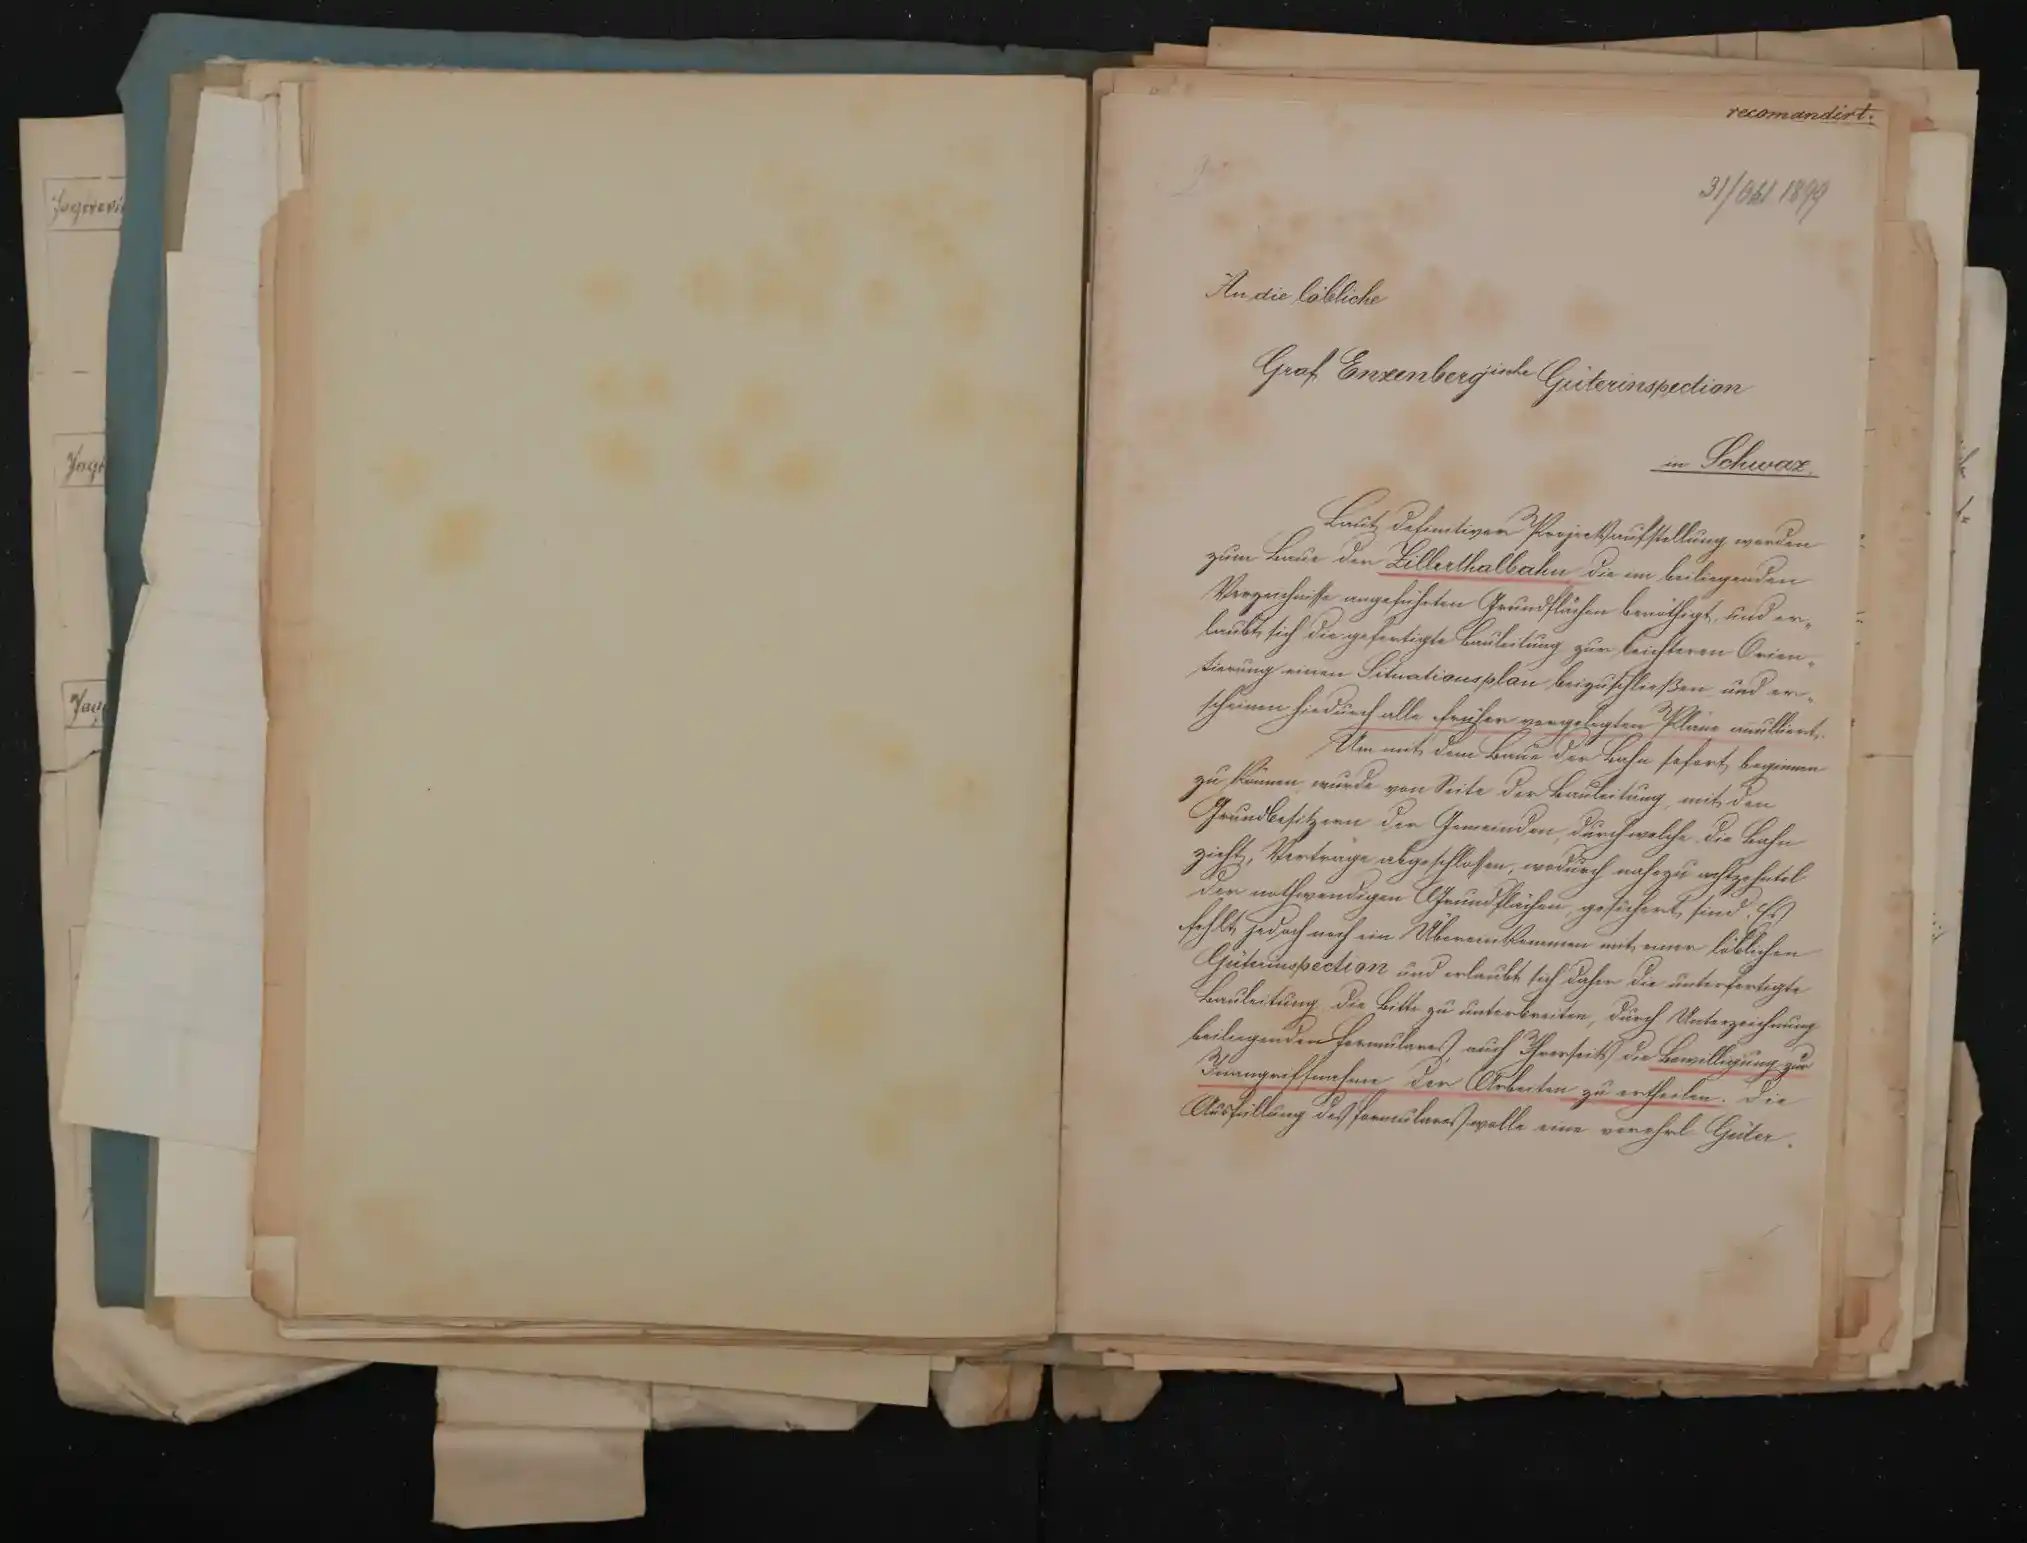 recomandirt.
31/Okt 1899
An die löbliche
Graf Enzenberg'ische Güterinspection
in Schwaz.
Laut definitiver Projectsaufstellung werden
zum Baue der Zillerthalbahn die im beiliegenden
Verzeichnisse angeführten Grundflächen benöthigt, und er-
laubt sich die gefertigte Bauleitung zur leichteren Orien-
tierung einen Situationsplan beizuschließen und er-
scheinen hiedurch alle früher vorgelegten Pläne anulliert.
Um mit dem Baue der Bahn sofort beginnen
zu können, wurde von Seite der Bauleitung, mit den
Grundbesitzern der Gemeinden, durch welche die Bahn
zieht, Verträge abgeschlossen, wodurch nahezu achtzehntel
der nothwendigen Grundflächen, gesichert sind. Es
fehlt jedoch noch ein Übereinkommen mit einer löblichen
Güterinspection und erlaubt sich daher die unterfertigte
Bauleitung, die Bitte zu unterbreiten, durch Unterzeichnung
beiliegenden Formulares, auch Ihrerseits die Bewilligung zur
Inangriffnahme der Arbeiten zu ertheilen. Die
Ausfüllung des Formulares wolle eine verehrl Güter-